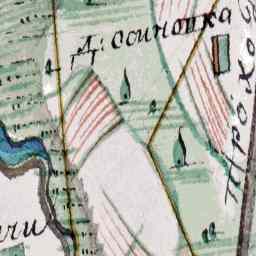 Д: Осиновка
Трохо
чи